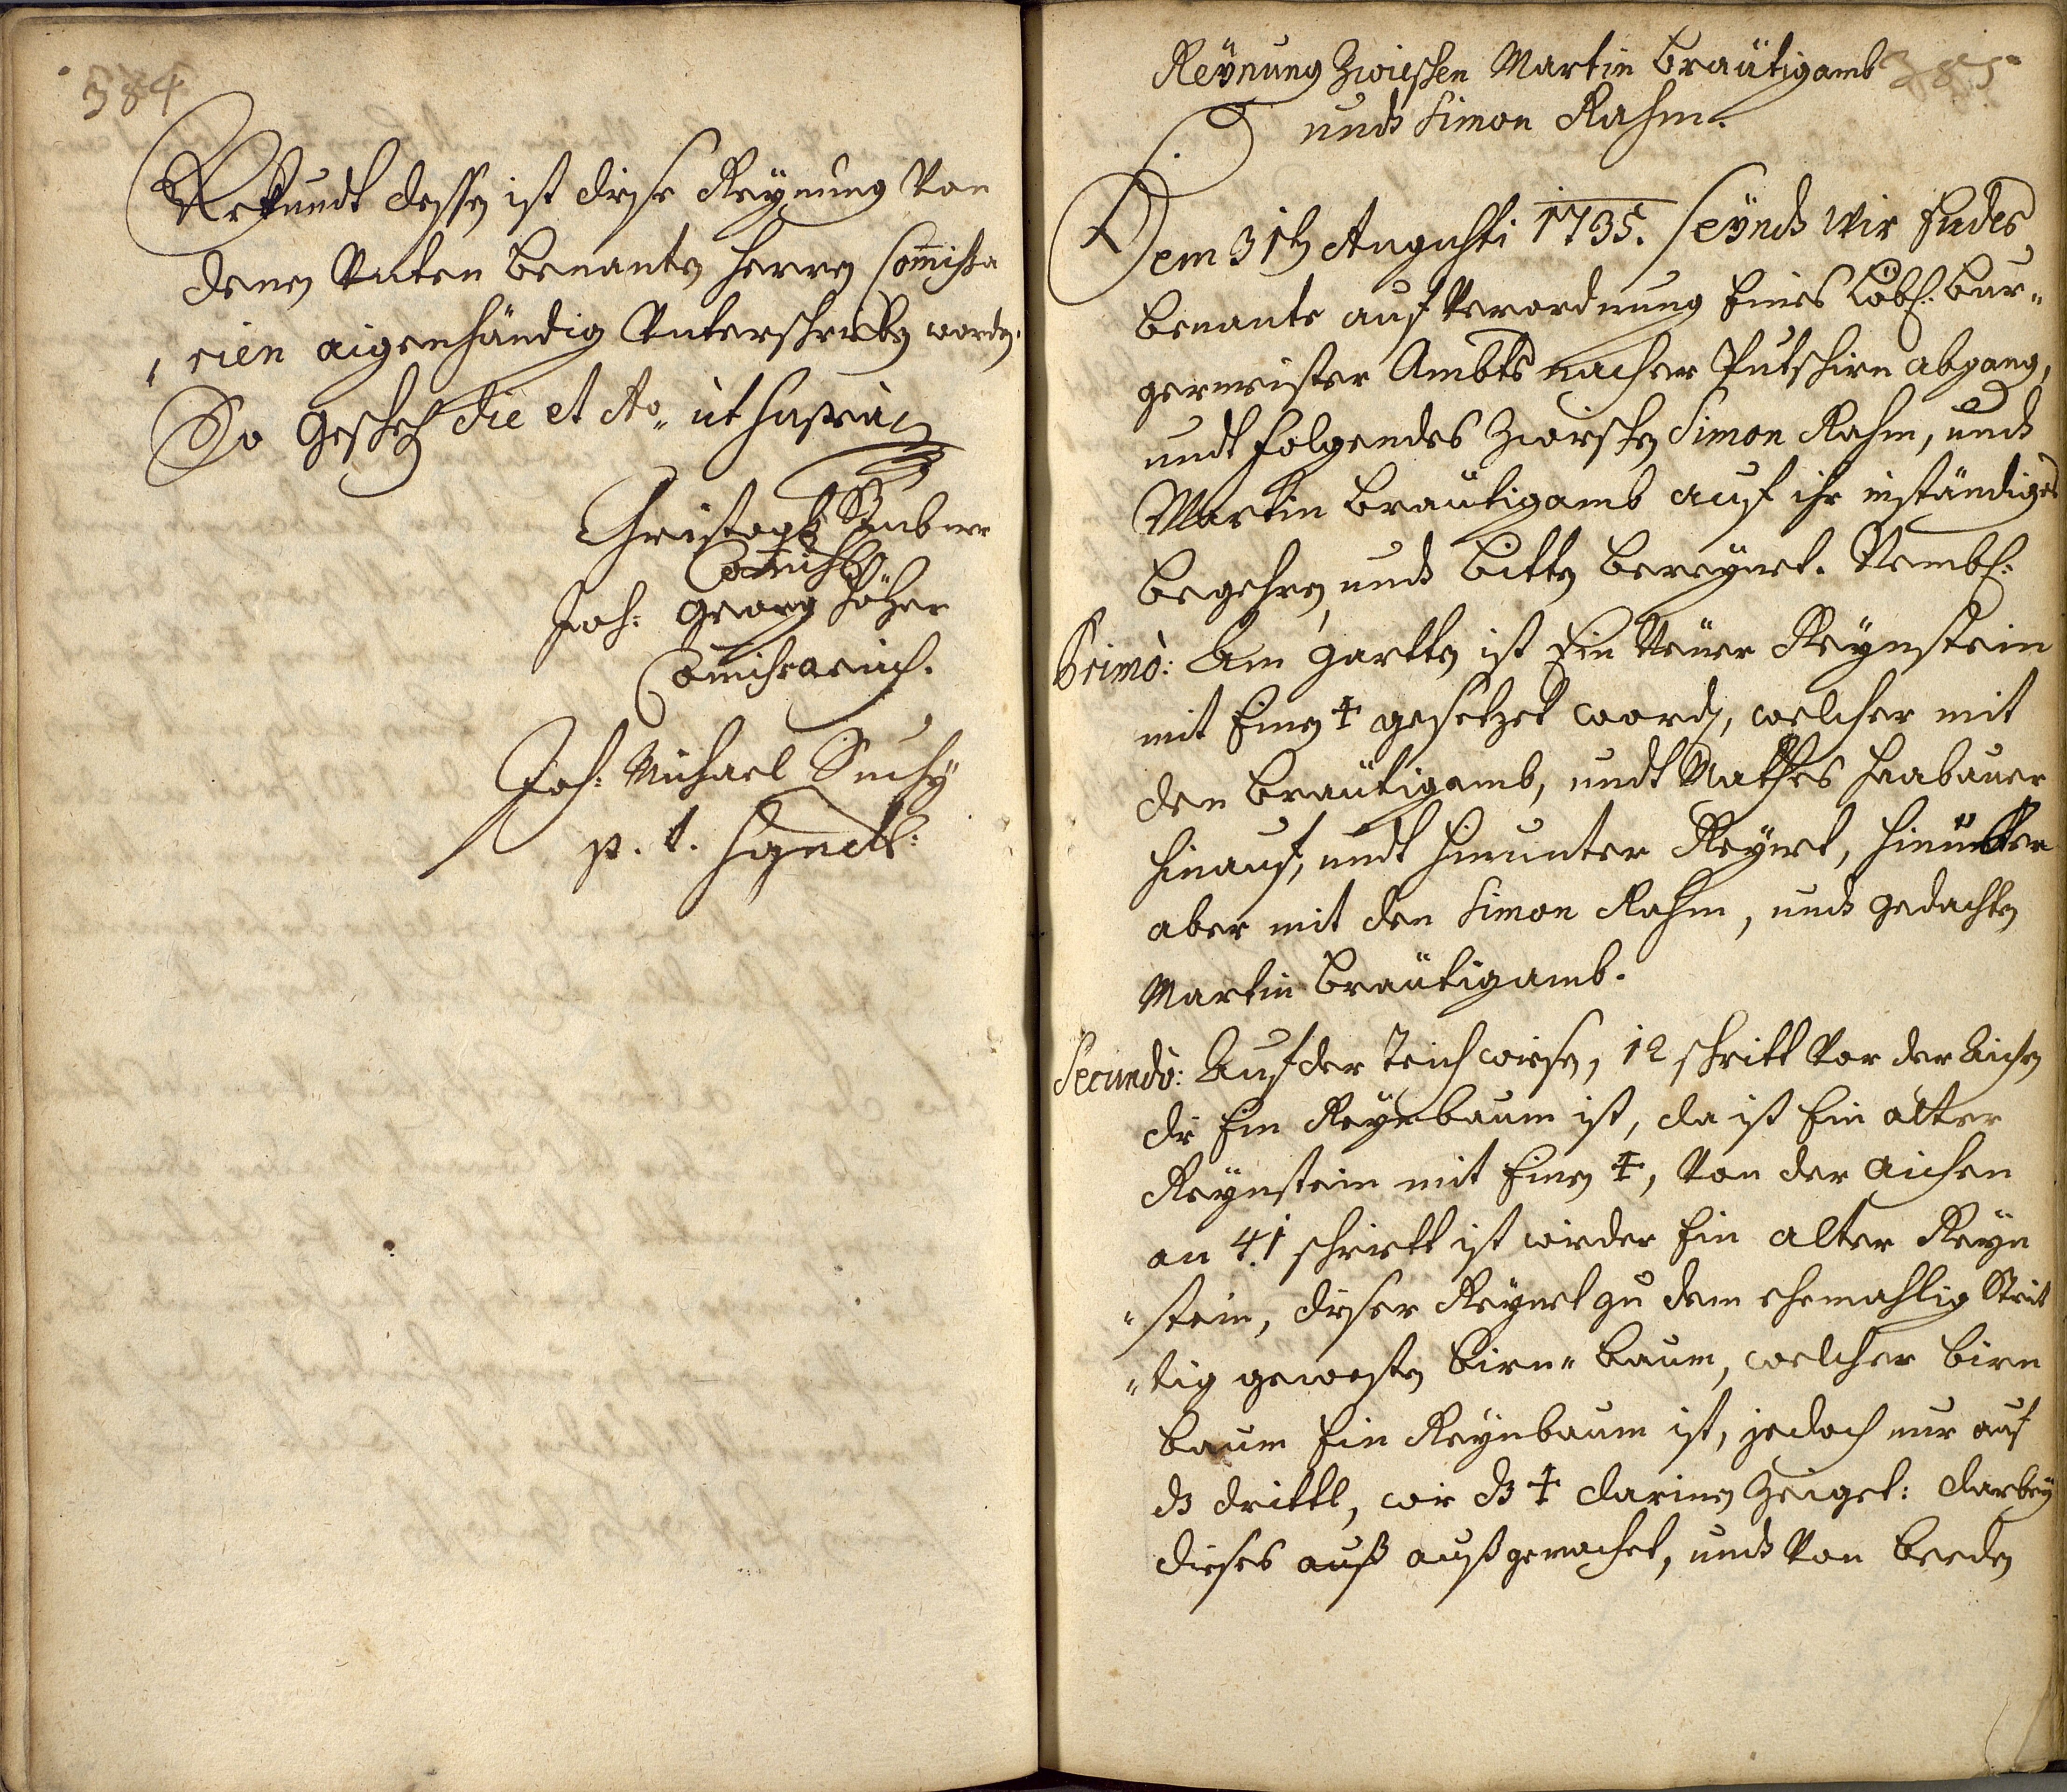 384
Urkundt dessen ist diese Reÿnung von
denen Unten benanten herren Commissa
rien aigenhändig Unterschrieben worden.
So Geschehen die et Ao. ut supra
Christoph
Joh: Georg
Commissarius.
Joh: Michael Suchÿ
p. t. Syndic:
385
Reÿnung Zwischen Martin Bräutigamb
und Simon Rahm.
Dem 31ten Augusti 1735. seÿnd Wir Endes
benante auf Verordnung Eines Löbl: Bur„
germeister Ambts nacher Putschirn abgang,
undt folgendes Zwischen Simon Rahm, und
Martin Bräutigamb auf ihr inständiges
begehren und bitten bereÿnet. Nembl:
Primò: Am Gartten ist Ein Neuer Reÿnstein
mit Einen ‡ gesetzet worden, welcher mit
den Bräutigamb, undt Mathes Haabauer
hinauf, undt hinunter Reÿnet, hinüber
aber mit den Simon Rahm, und gedachten
Martin Bräutigamb.
Secundò: Auf der Teichwiesen, 12 schritt Vor der Aichen
die Ein Reÿnbaum ist, da ist Ein alter
Reÿnstein mit Einen ‡, Von der Aichen
an 41 schriett ist wieder Ein alter Reÿn
„stein, dieser Reÿnet zu dem ehemahlig Strit
„tig gewesten Birn„ baum, welcher Birn
baum Ein Reÿnbaum ist, jedoch nur auf
ds drittl, wie ds ‡ darinen Zeiget: darbeÿ
dieses auß außgemachet, und Von beeden